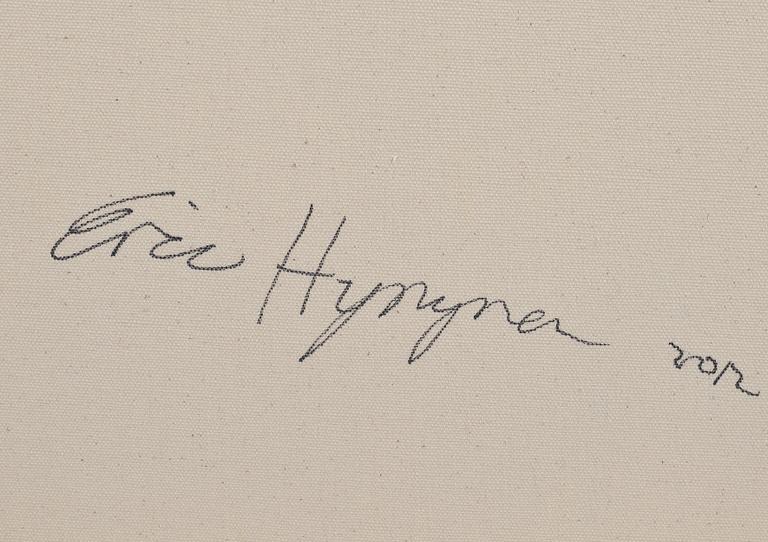 Eric Hynynen 2012